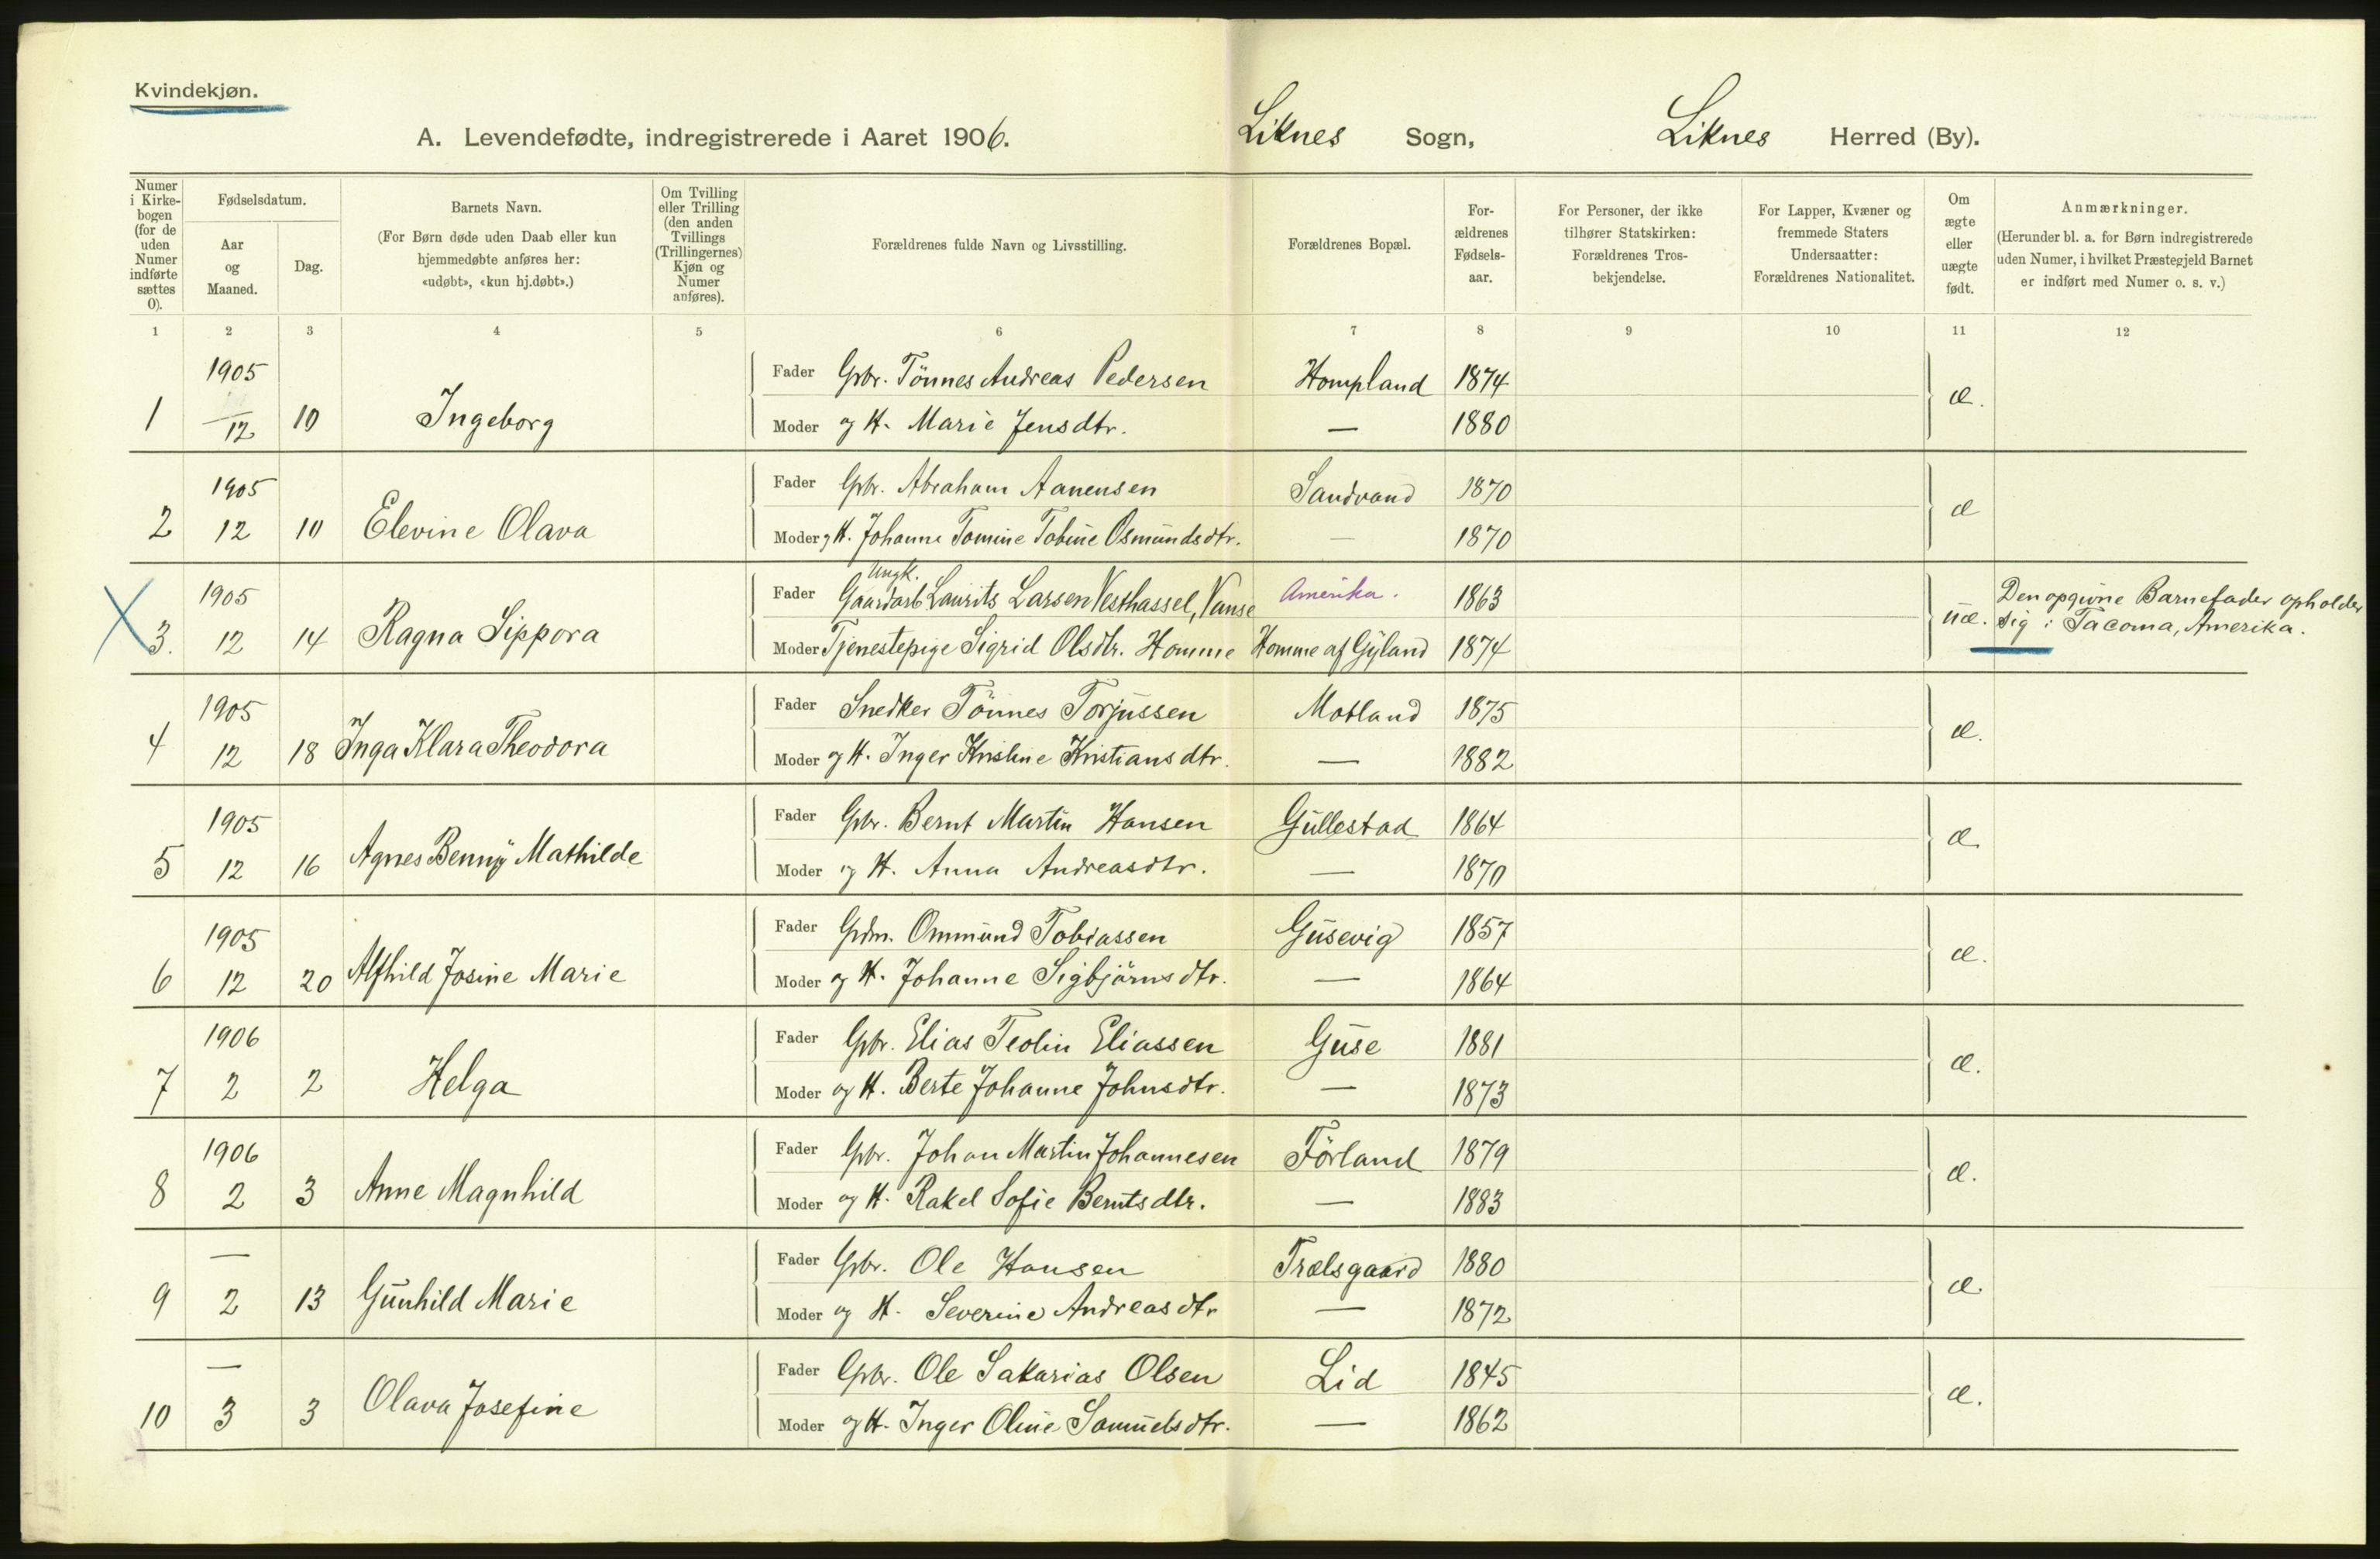 Kvindekjøn.
A. Levendefødte, indregistrerede i Aaret 1906. Liknes Sogn, Liknes Herred (By).
Numer i Kirke-bogen (for de uden Numer indførte sættes 0).
Fødselsdatum.
Aar og Maaned.
Dag.
Barnets Navn.
(For Børn døde uden Daab eller kun
hjemmedøbte anføres her:
«udøbt», «kun hj.døbt».)
Om Tvilling
eller Trilling
(den anden
Tvillings
(Trillingernes)
Kjøn og
Numer
anføres).
Forældrenes fulde Navn og Livsstilling.
Forældrenes Bopæl.
For-
ældrenes
Fødsels-
aar.
For Personer, der ikke
tilhører Statskirken:
Forældrenes Tros-
bekjendelse.
For Lapper, Kvæner og
fremmede Staters
Undersaatter:
Forældrenes Nationalitet.
Om
ægte
eller
uægte
født.
Anmærkninger.
(Herunder bl. a. for Børn indregistrerede
uden Numer, i hvilket Præstegjeld Barnet
er indført med Numer o. s. v.)
1 2 3 4 5 6 7 8 9 10 11 12
1905 Fader Gbr. Tönnes Andreas Pedersen Hompland 1874
1 12 10 Ingeborg Moder og H. Marie Jensdtr. — 1880 æ.
1905 Fader Gbr. Abraham Aanensen Sandvand 1870
2 12 10 Elevine Olava Moder og H. Johanne Tomine Tobine Osmundsdtr. — 1870 æ
1905 Fader Ungk. Gaardarb. Laurits Larsen Vesthassel, Vanse Amerika. 1863 Den opgivne Barnefader opholder
X 3. 12 14 Ragna Sippora Moder Tjenestepige Sigrid Olsdtr. Homme Homme af Gyland 1874 uæ. sig i Tacoma, Amerika.
1905 Fader Snedker Tönnes Torjussen Motland 1875
4 12 18 Inga Klara Theodora Moder og H. Inger Kristine Kristiansdtr. — 1882 æ.
1905 Fader Gbr. Bernt Martin Hansen Gullestad 1864
5 12 16 Agnes Benny Mathilde Moder og H. Anna Andreasdtr. — 1870 æ.
1905 Fader Gdm. Ommund Tobiassen Gusevig 1857
6 12 20 Alfhild Josine Marie Moder og H. Johanne Sigbjörnsdtr. — 1864 æ.
1906 Fader Gbr. Elias Teolin Eliassen Guse 1881
7 2 2 Helga Moder og H. Berte Johanne Johnsdtr. — 1873 æ.
1906 Fader Gbr. Johan Martin Johannesen Förland 1879
8 2 3 Anne Magnhild Moder og H. Rakel Sofie Berntsdtr. — 1883 æ.
— Fader Gbr. Ole Hansen Trælsgaard 1880
9 2 13 Gunhild Marie Moder og H. Severine Andreasdtr — 1872 æ.
— Fader Gbr. Ole Sakarias Olsen Lid 1845
10 3 3 Olava Josefine Moder og H. Inger Oline Samuelsdtr. — 1862 æ.